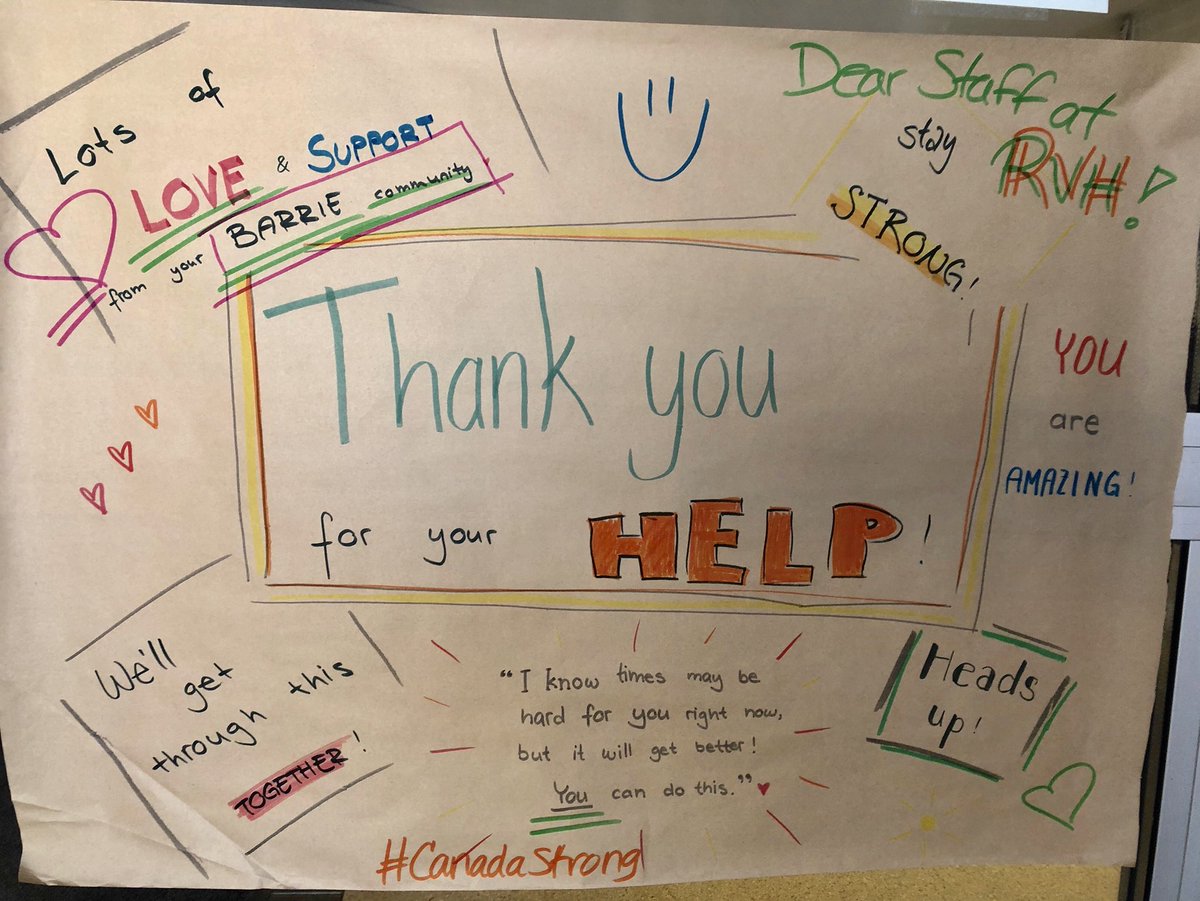 Lots of
LOVE & SUPPORT
from your BARRIE community
Dear Staff at
RVH!
stay
STRONG!
Thank you
for your HELP!
YOU
are
AMAZING!
We'll
get
through this
TOGETHER!
"I know times may be
hard for you right now,
but it will get better!
You can do this."
Heads
up!
#CanadaStrong